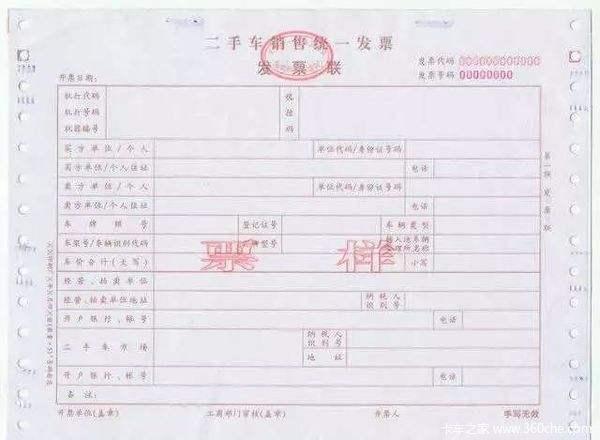 二手车销售统一发票
发票联
发票代码 000000000000
发票号码 00000000
开票日期:
机打代码
机打号码
机器编号
税控码
买方单位/个人 单位代码/身份证号码
买方单位/个人住址 电话
卖方单位/个人 单位代码/身份证号码
卖方单位/个人住址 电话
车牌照号 登记证号 车辆类型
车架号/车辆识别代码 牌型号 转入地车辆管理所名称
车价合计(大写) 小写
票样
经营、拍卖单位
经营、拍卖单位地址 纳税人识别号
开户银行、帐号 电话
二手车市场 纳税人识别号
地址
开户银行、帐号 电话
备注:
开票单位(盖章) 工商部门审核(盖章) 开票人 手写无效
第一联 发票联
卡车之家 www.360che.com